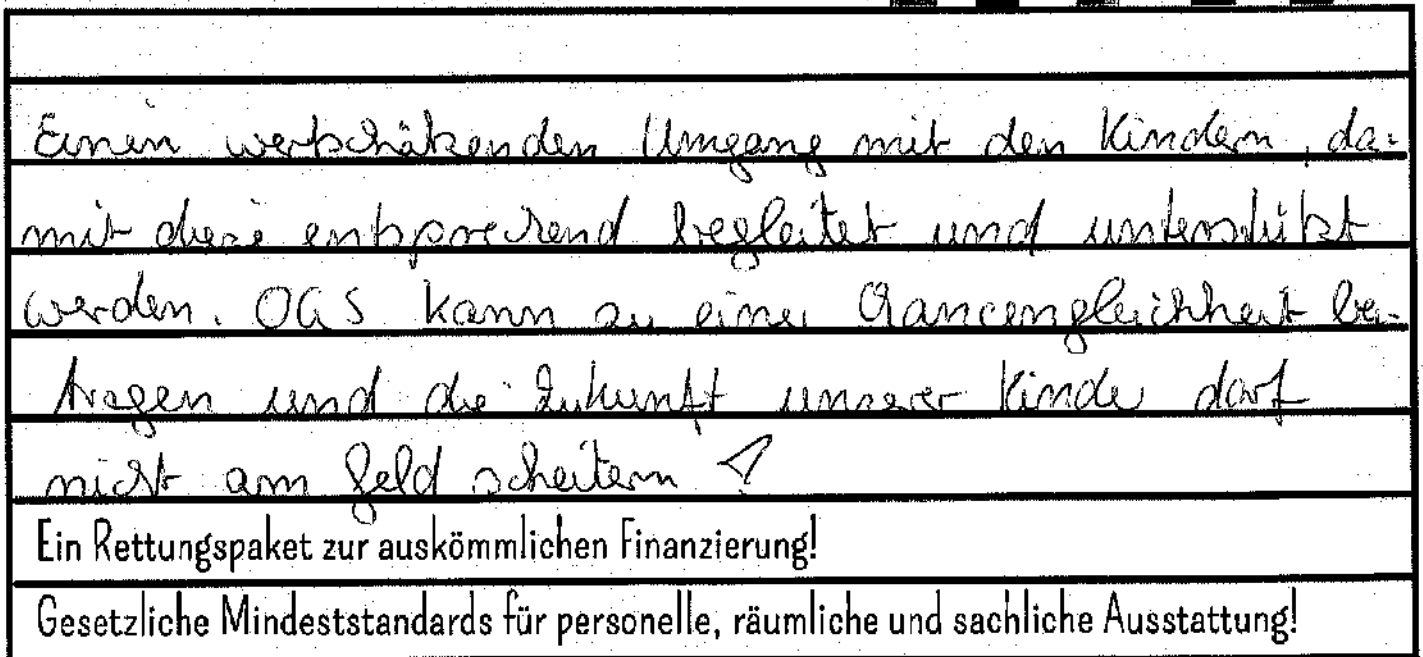 Einen wertschätzenden Umgang mit den Kindern, da-
mit diese entsprechend begleitet und unterstützt
werden. OGS kann zu einer Chancengleichheit bei-
tragen und die Zukunft unserer Kinder darf
nicht am Geld scheitern!
Ein Rettungspaket zur auskömmlichen Finanzierung!
Gesetzliche Mindeststandards für personelle, räumliche und sachliche Ausstattung!